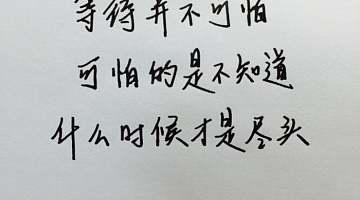 等待并不可怕
可怕的是不知道
什么时候才是尽头